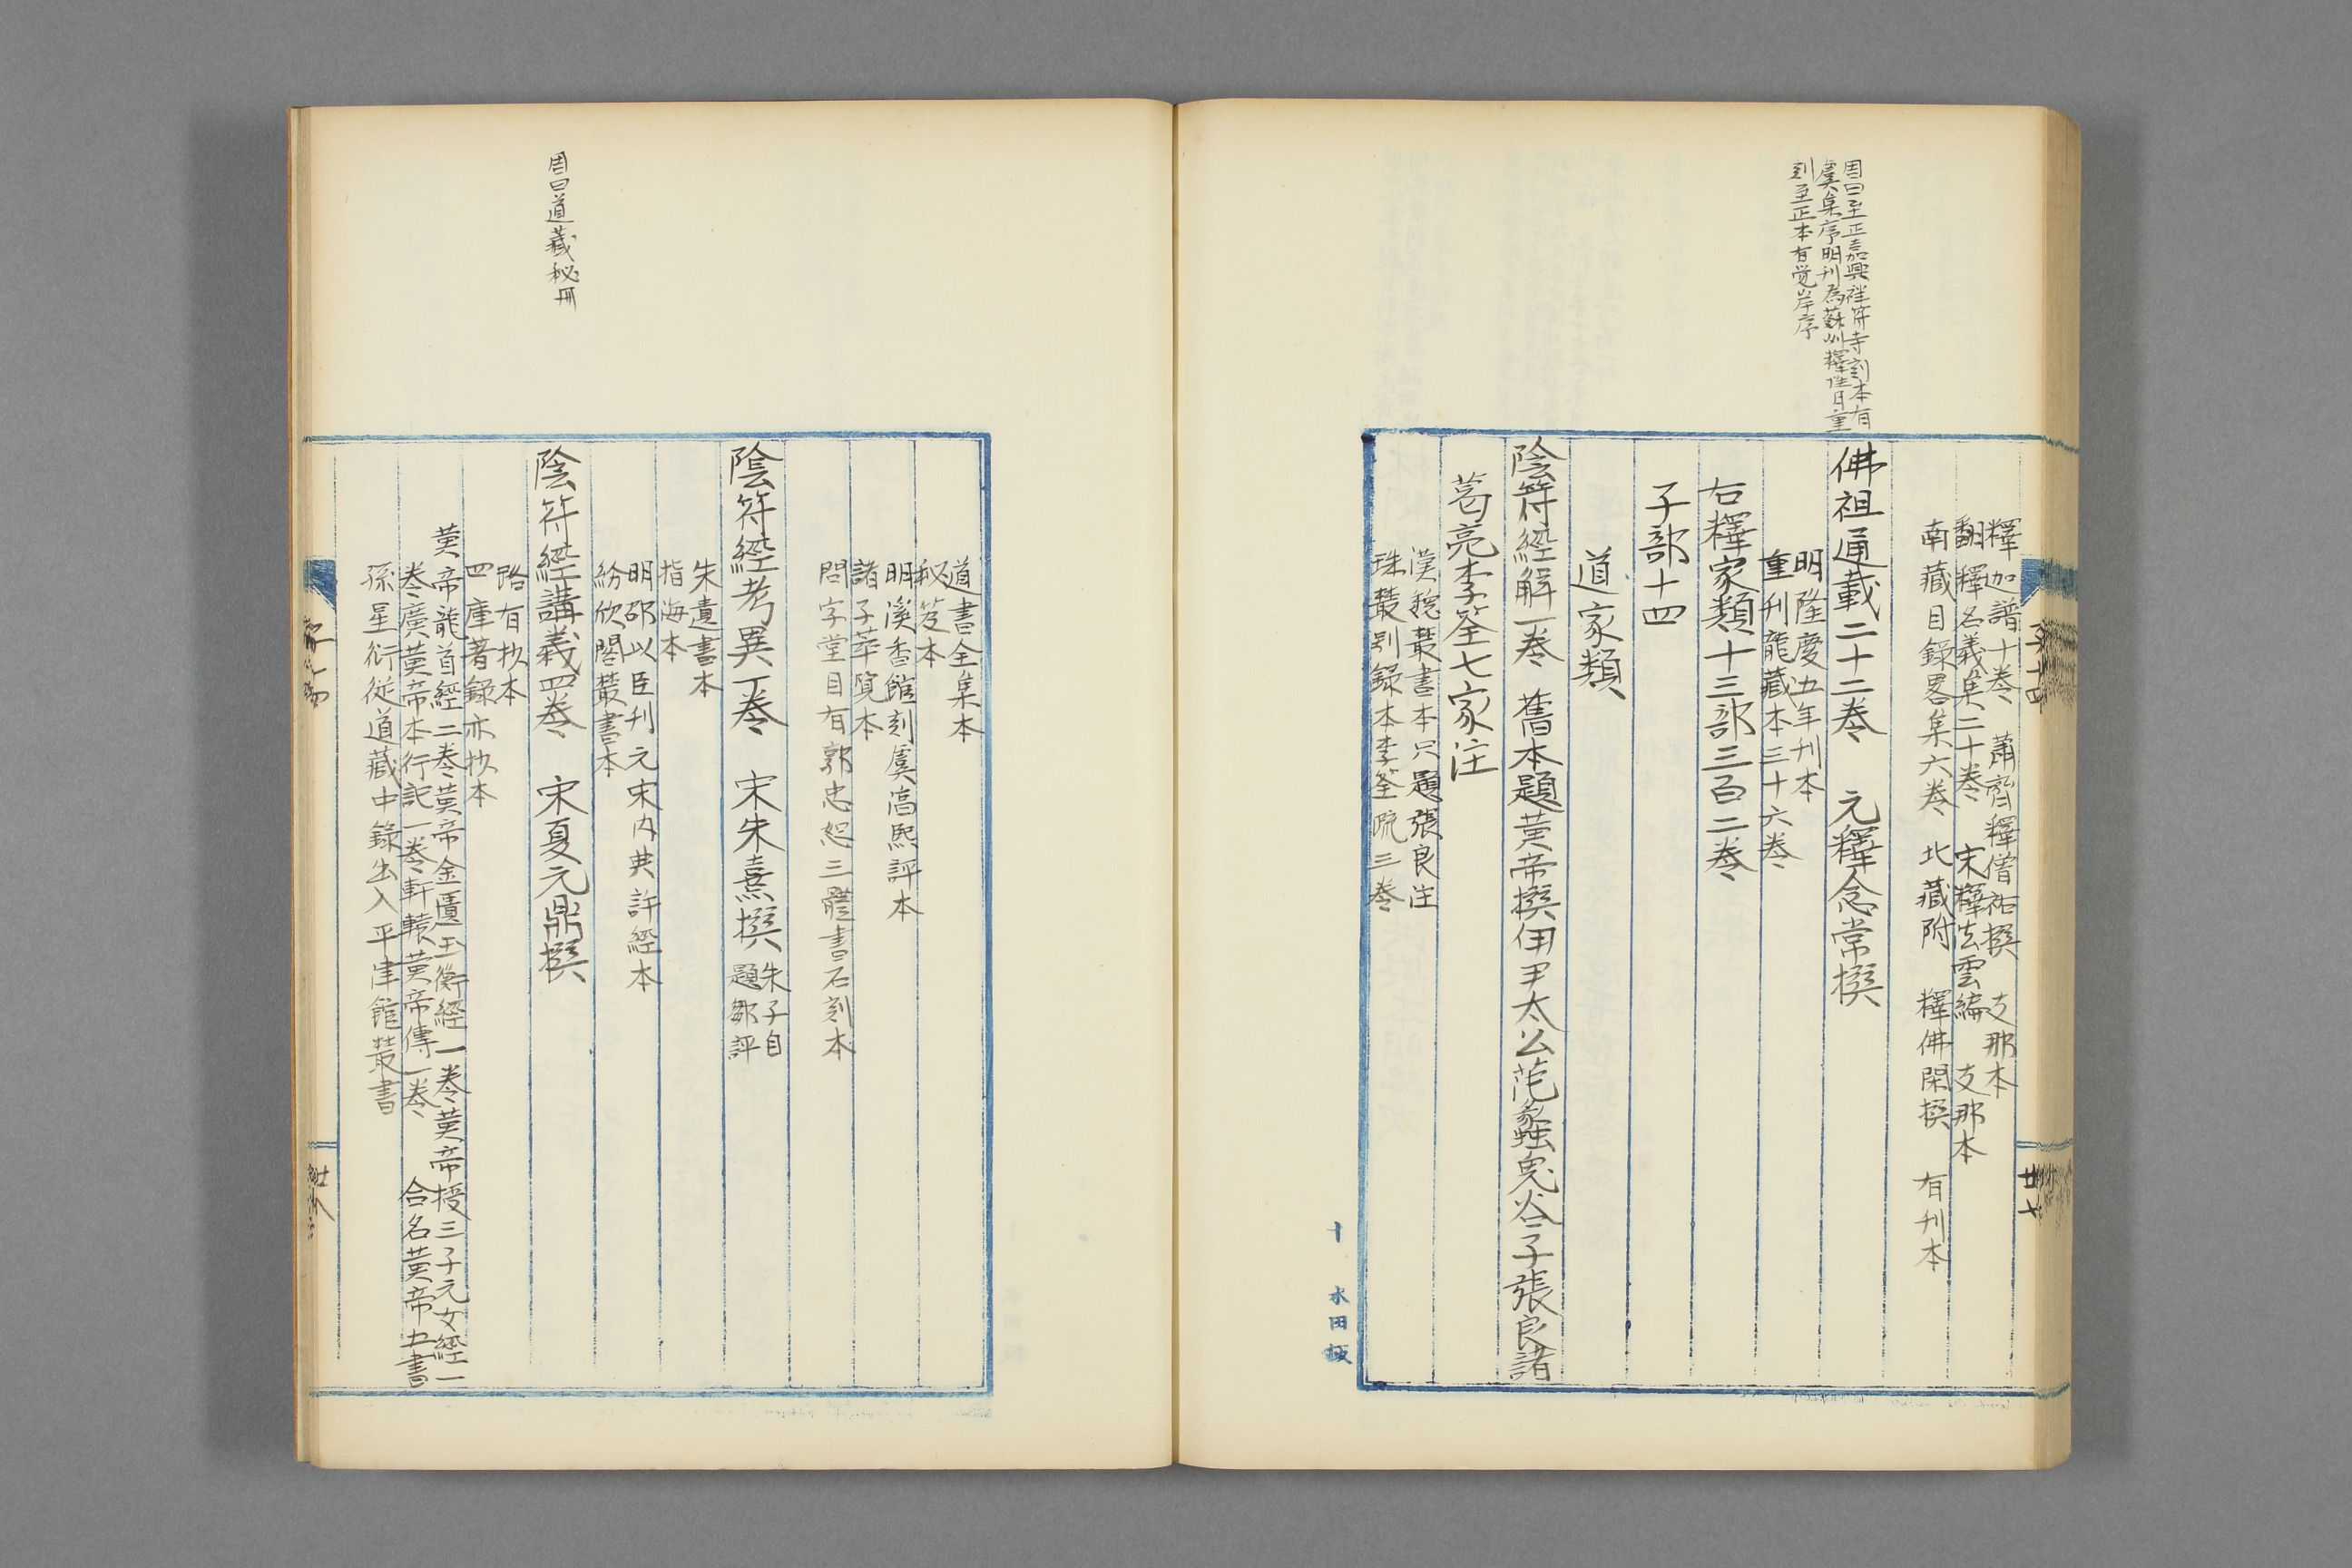 周曰至正嘉興祥符寺刻本有
虞集序明刊為蘇州釋性月重
刻至正本有覚岸序
釋迦譜十卷　蕭齊釋僧祐撰　支那本
翻釋名義集二十卷　宋釋法雲編　支那本
南藏目錄畧集六卷　北藏附　釋佛閑撰　有刊本
佛祖通載二十二卷　元釋念常撰
明隆慶五年刊本
重刊龍藏本三十六卷
右釋家類十三部三百二卷
子部十四
道家類
陰符經解一卷　舊本題黃帝撰伊尹太公范蠡鬼谷子張良諸
葛亮李筌七家注
漢魏叢書本只題張良注
珠叢別錄本李筌疏三卷
水田板
周曰道藏秘冊
道書全集本
秘笈本
明溪香館刻虞高熙評本
諸子萃覽本
問字堂目有郭忠恕三體書石刻本
陰符經考異一卷　宋朱熹撰　朱子自
題鄒訢
朱遺書本
指海本
明邵以臣刊元宋內典許經本
紛欣閣叢書本
陰符經講義四卷　宋夏元鼎撰
路有抄本
四庫著錄亦抄本
黃帝龍首經二卷黃帝金匱玉衡經一卷黃帝授三子元女經一
卷廣黃帝本行記一卷軒轅黃帝傳一卷　合名黃帝五書
孫星衍從道藏中錄出入平津館叢書